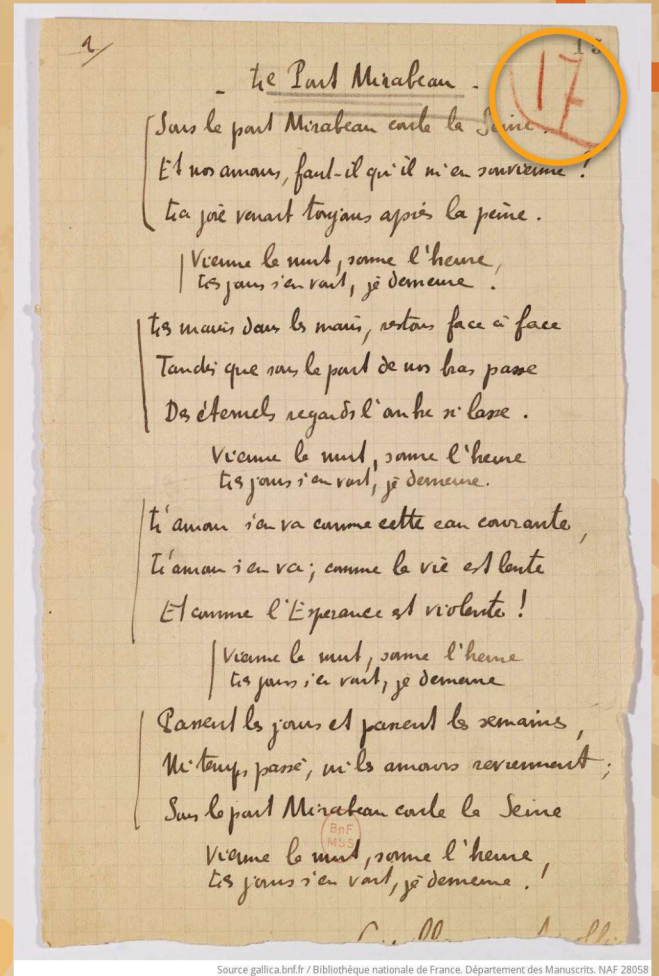 2/
15
17
- Le Pont Mirabeau -
Sous le pont Mirabeau coule la Seine.
Et nos amours, faut-il qu'il m'en souvienne !
La joie venait toujours après la peine.
Vienne la nuit, sonne l'heure,
Les jours s'en vont, je demeure.
Les mains dans les mains, restons face à face
Tandis que sous le pont de nos bras passe
Des éternels regards l'onde si lasse.
Vienne la nuit, sonne l'heure
Les jours s'en vont, je demeure.
L'amour s'en va comme cette eau courante,
L'amour s'en va ; comme la vie est lente
Et comme l'Espérance est violente !
Vienne la nuit, sonne l'heure
Les jours s'en vont, je demeure
Passent les jours et passent les semaines,
Ni temps passé, ni les amours reviennent ;
Sous le pont Mirabeau coule la Seine
BnF
MSS
Vienne la nuit, sonne l'heure,
Les jours s'en vont, je demeure !
Source gallica.bnf.fr / Bibliothèque nationale de France. Département des Manuscrits. NAF 28058